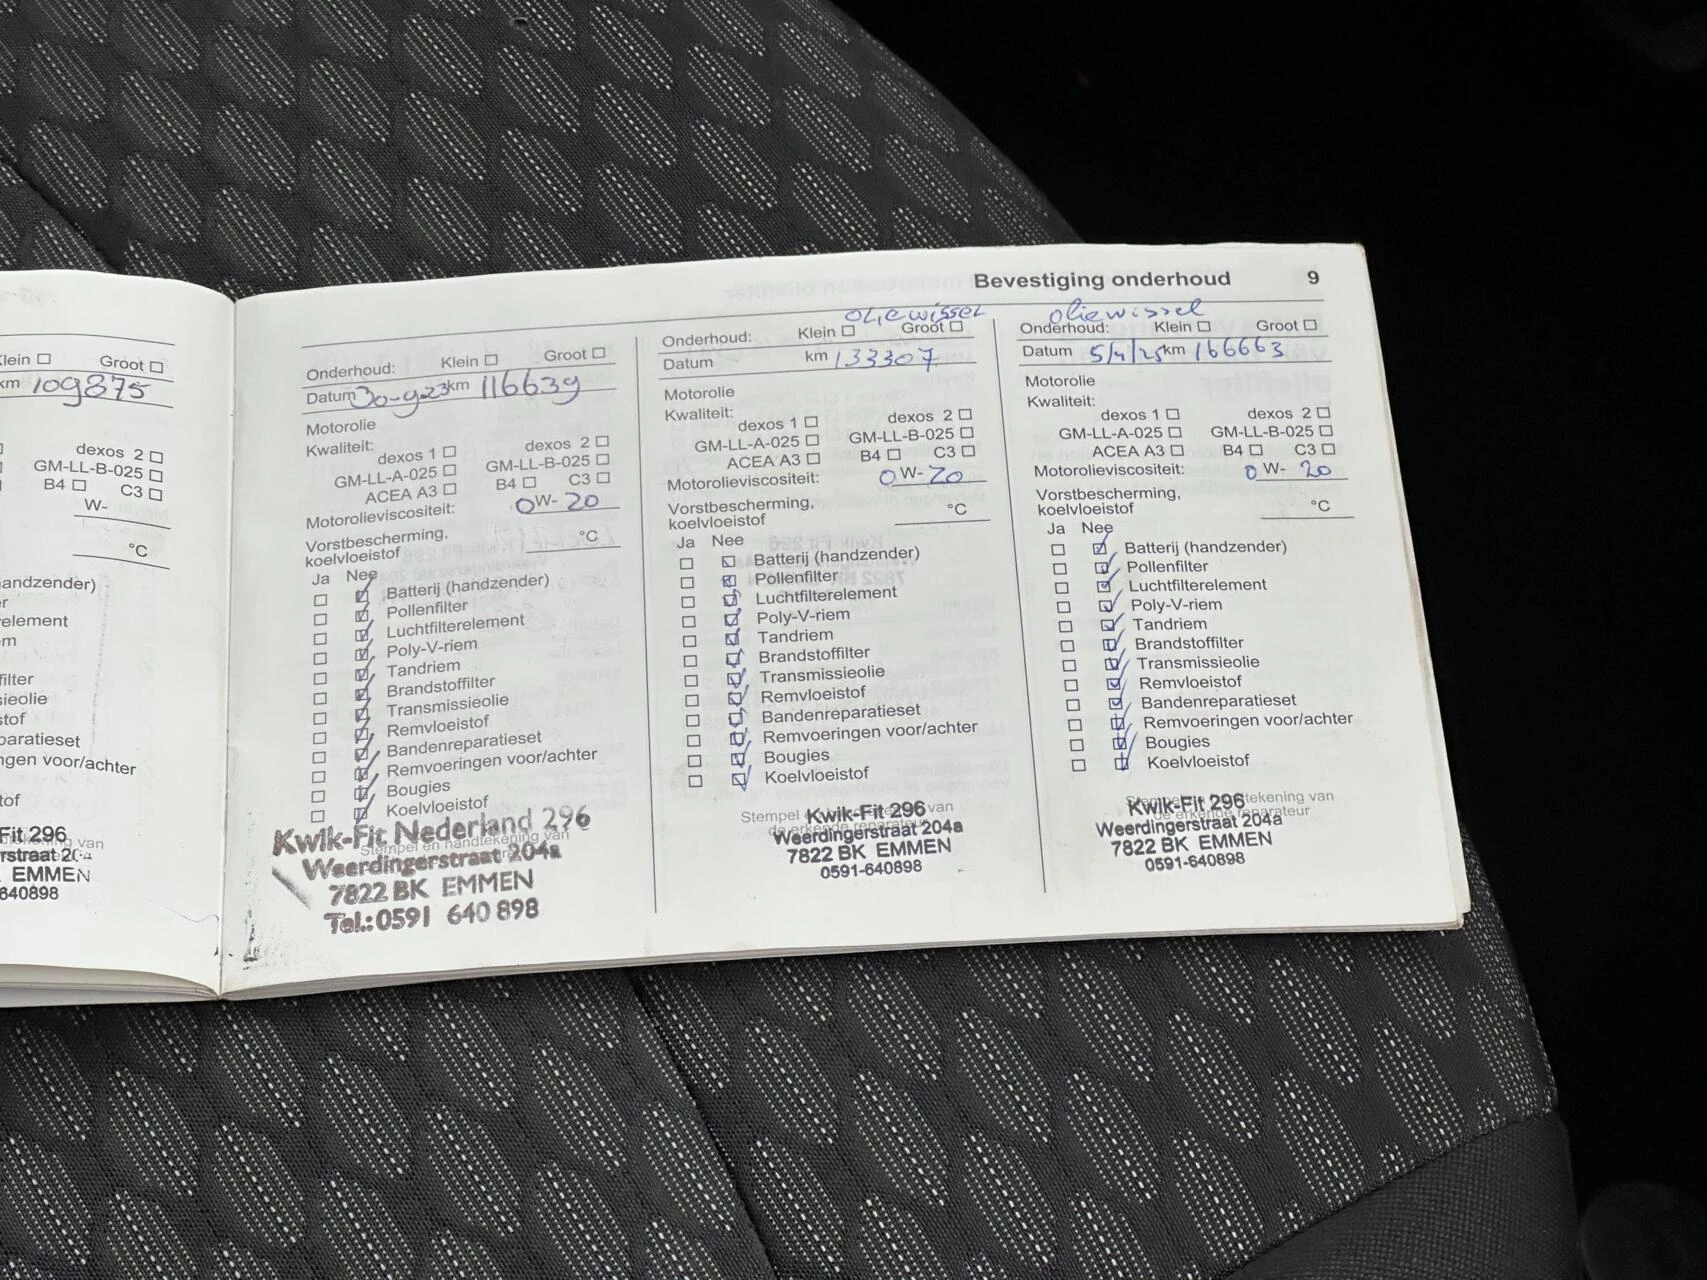 Klein ☐ Groot ☐
km 109875
dexos 2 ☐
GM-LL-B-025 ☐
B4 ☐ C3 ☐
W-
°C
andzender)
element
filter
sieolie
stof
paratieset
ngen voor/achter
tof
Fit 296
rstraat 20
EMMEN
640898
Bevestiging onderhoud 9
Onderhoud: Klein ☐ Groot ☐
Datum 30-9-23 km 116639
Motorolie
Kwaliteit:
dexos 1 ☐ dexos 2 ☐
GM-LL-A-025 ☐ GM-LL-B-025 ☐
ACEA A3 ☐ B4 ☐ C3 ☐
Motorolieviscositeit: 0W-20
Vorstbescherming,
koelvloeistof °C
Ja Nee
☐ ☑ Batterij (handzender)
☐ ☑ Pollenfilter
☐ ☑ Luchtfilterelement
☐ ☑ Poly-V-riem
☐ ☑ Tandriem
☐ ☑ Brandstoffilter
☐ ☑ Transmissieolie
☐ ☑ Remvloeistof
☐ ☑ Bandenreparatieset
☐ ☑ Remvoeringen voor/achter
☐ ☑ Bougies
☐ ☑ Koelvloeistof
Stempel en handtekening van
Kwik-Fit Nederland 296
Weerdingerstraat 204a
7822 BK EMMEN
Tel.: 0591 640 898
oliewissel
Onderhoud: Klein ☐ Groot ☐
Datum km 133307
Motorolie
Kwaliteit:
dexos 1 ☐ dexos 2 ☐
GM-LL-A-025 ☐ GM-LL-B-025 ☐
ACEA A3 ☐ B4 ☐ C3 ☐
Motorolieviscositeit: 0W-20
Vorstbescherming,
koelvloeistof °C
Ja Nee
☐ ☑ Batterij (handzender)
☐ ☑ Pollenfilter
☐ ☑ Luchtfilterelement
☐ ☑ Poly-V-riem
☐ ☑ Tandriem
☐ ☑ Brandstoffilter
☐ ☑ Transmissieolie
☐ ☑ Remvloeistof
☐ ☑ Bandenreparatieset
☐ ☑ Remvoeringen voor/achter
☐ ☑ Bougies
☐ ☑ Koelvloeistof
Stempel van
de erkende reparateur
Kwik-Fit 296
Weerdingerstraat 204a
7822 BK EMMEN
0591-640898
oliewissel
Onderhoud: Klein ☐ Groot ☐
Datum 5/4/25 km 166663
Motorolie
Kwaliteit:
dexos 1 ☐ dexos 2 ☐
GM-LL-A-025 ☐ GM-LL-B-025 ☐
ACEA A3 ☐ B4 ☐ C3 ☐
Motorolieviscositeit: 0W-20
Vorstbescherming,
koelvloeistof °C
Ja Nee
☐ ☑ Batterij (handzender)
☐ ☑ Pollenfilter
☐ ☑ Luchtfilterelement
☐ ☑ Poly-V-riem
☐ ☑ Tandriem
☐ ☑ Brandstoffilter
☐ ☑ Transmissieolie
☐ ☑ Remvloeistof
☐ ☑ Bandenreparatieset
☐ ☑ Remvoeringen voor/achter
☐ ☑ Bougies
☐ ☑ Koelvloeistof
Stempel handtekening van
de erkende reparateur
Kwik-Fit 296
Weerdingerstraat 204a
7822 BK EMMEN
0591-640898